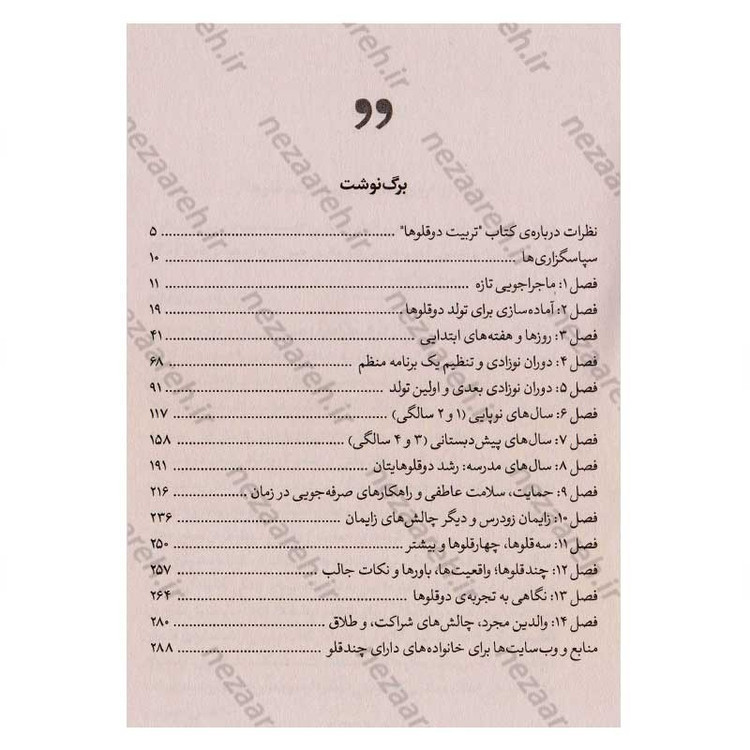 برگ‌نوشت
نظرات درباره‌ی کتاب "تربیت دوقلوها" ........................ ۵
سپاسگزاری‌ها ........................ ۱۰
فصل ۱: ماجراجویی تازه ........................ ۱۱
فصل ۲: آماده‌سازی برای تولد دوقلوها ........................ ۱۹
فصل ۳: روزها و هفته‌های ابتدایی ........................ ۴۱
فصل ۴: دوران نوزادی و تنظیم یک برنامه منظم ........................ ۶۸
فصل ۵: دوران نوزادی بعدی و اولین تولد ........................ ۹۱
فصل ۶: سال‌های نوپایی (۱ و ۲ سالگی) ........................ ۱۱۷
فصل ۷: سال‌های پیش‌دبستانی (۳ و ۴ سالگی) ........................ ۱۵۸
فصل ۸: سال‌های مدرسه: رشد دوقلوهایتان ........................ ۱۹۱
فصل ۹: حمایت، سلامت عاطفی و راهکارهای صرفه‌جویی در زمان ........................ ۲۱۶
فصل ۱۰: زایمان زودرس و دیگر چالش‌های زایمان ........................ ۲۳۶
فصل ۱۱: سه‌قلوها، چهارقلوها و بیشتر ........................ ۲۵۰
فصل ۱۲: چندقلوها؛ واقعیت‌ها، باورها و نکات جالب ........................ ۲۵۷
فصل ۱۳: نگاهی به تجربه‌ی دوقلوها ........................ ۲۶۴
فصل ۱۴: والدین مجرد، چالش‌های شراکت، و طلاق ........................ ۲۸۰
منابع و وب‌سایت‌ها برای خانواده‌های دارای چندقلو ........................ ۲۸۸
nezaareh.ir